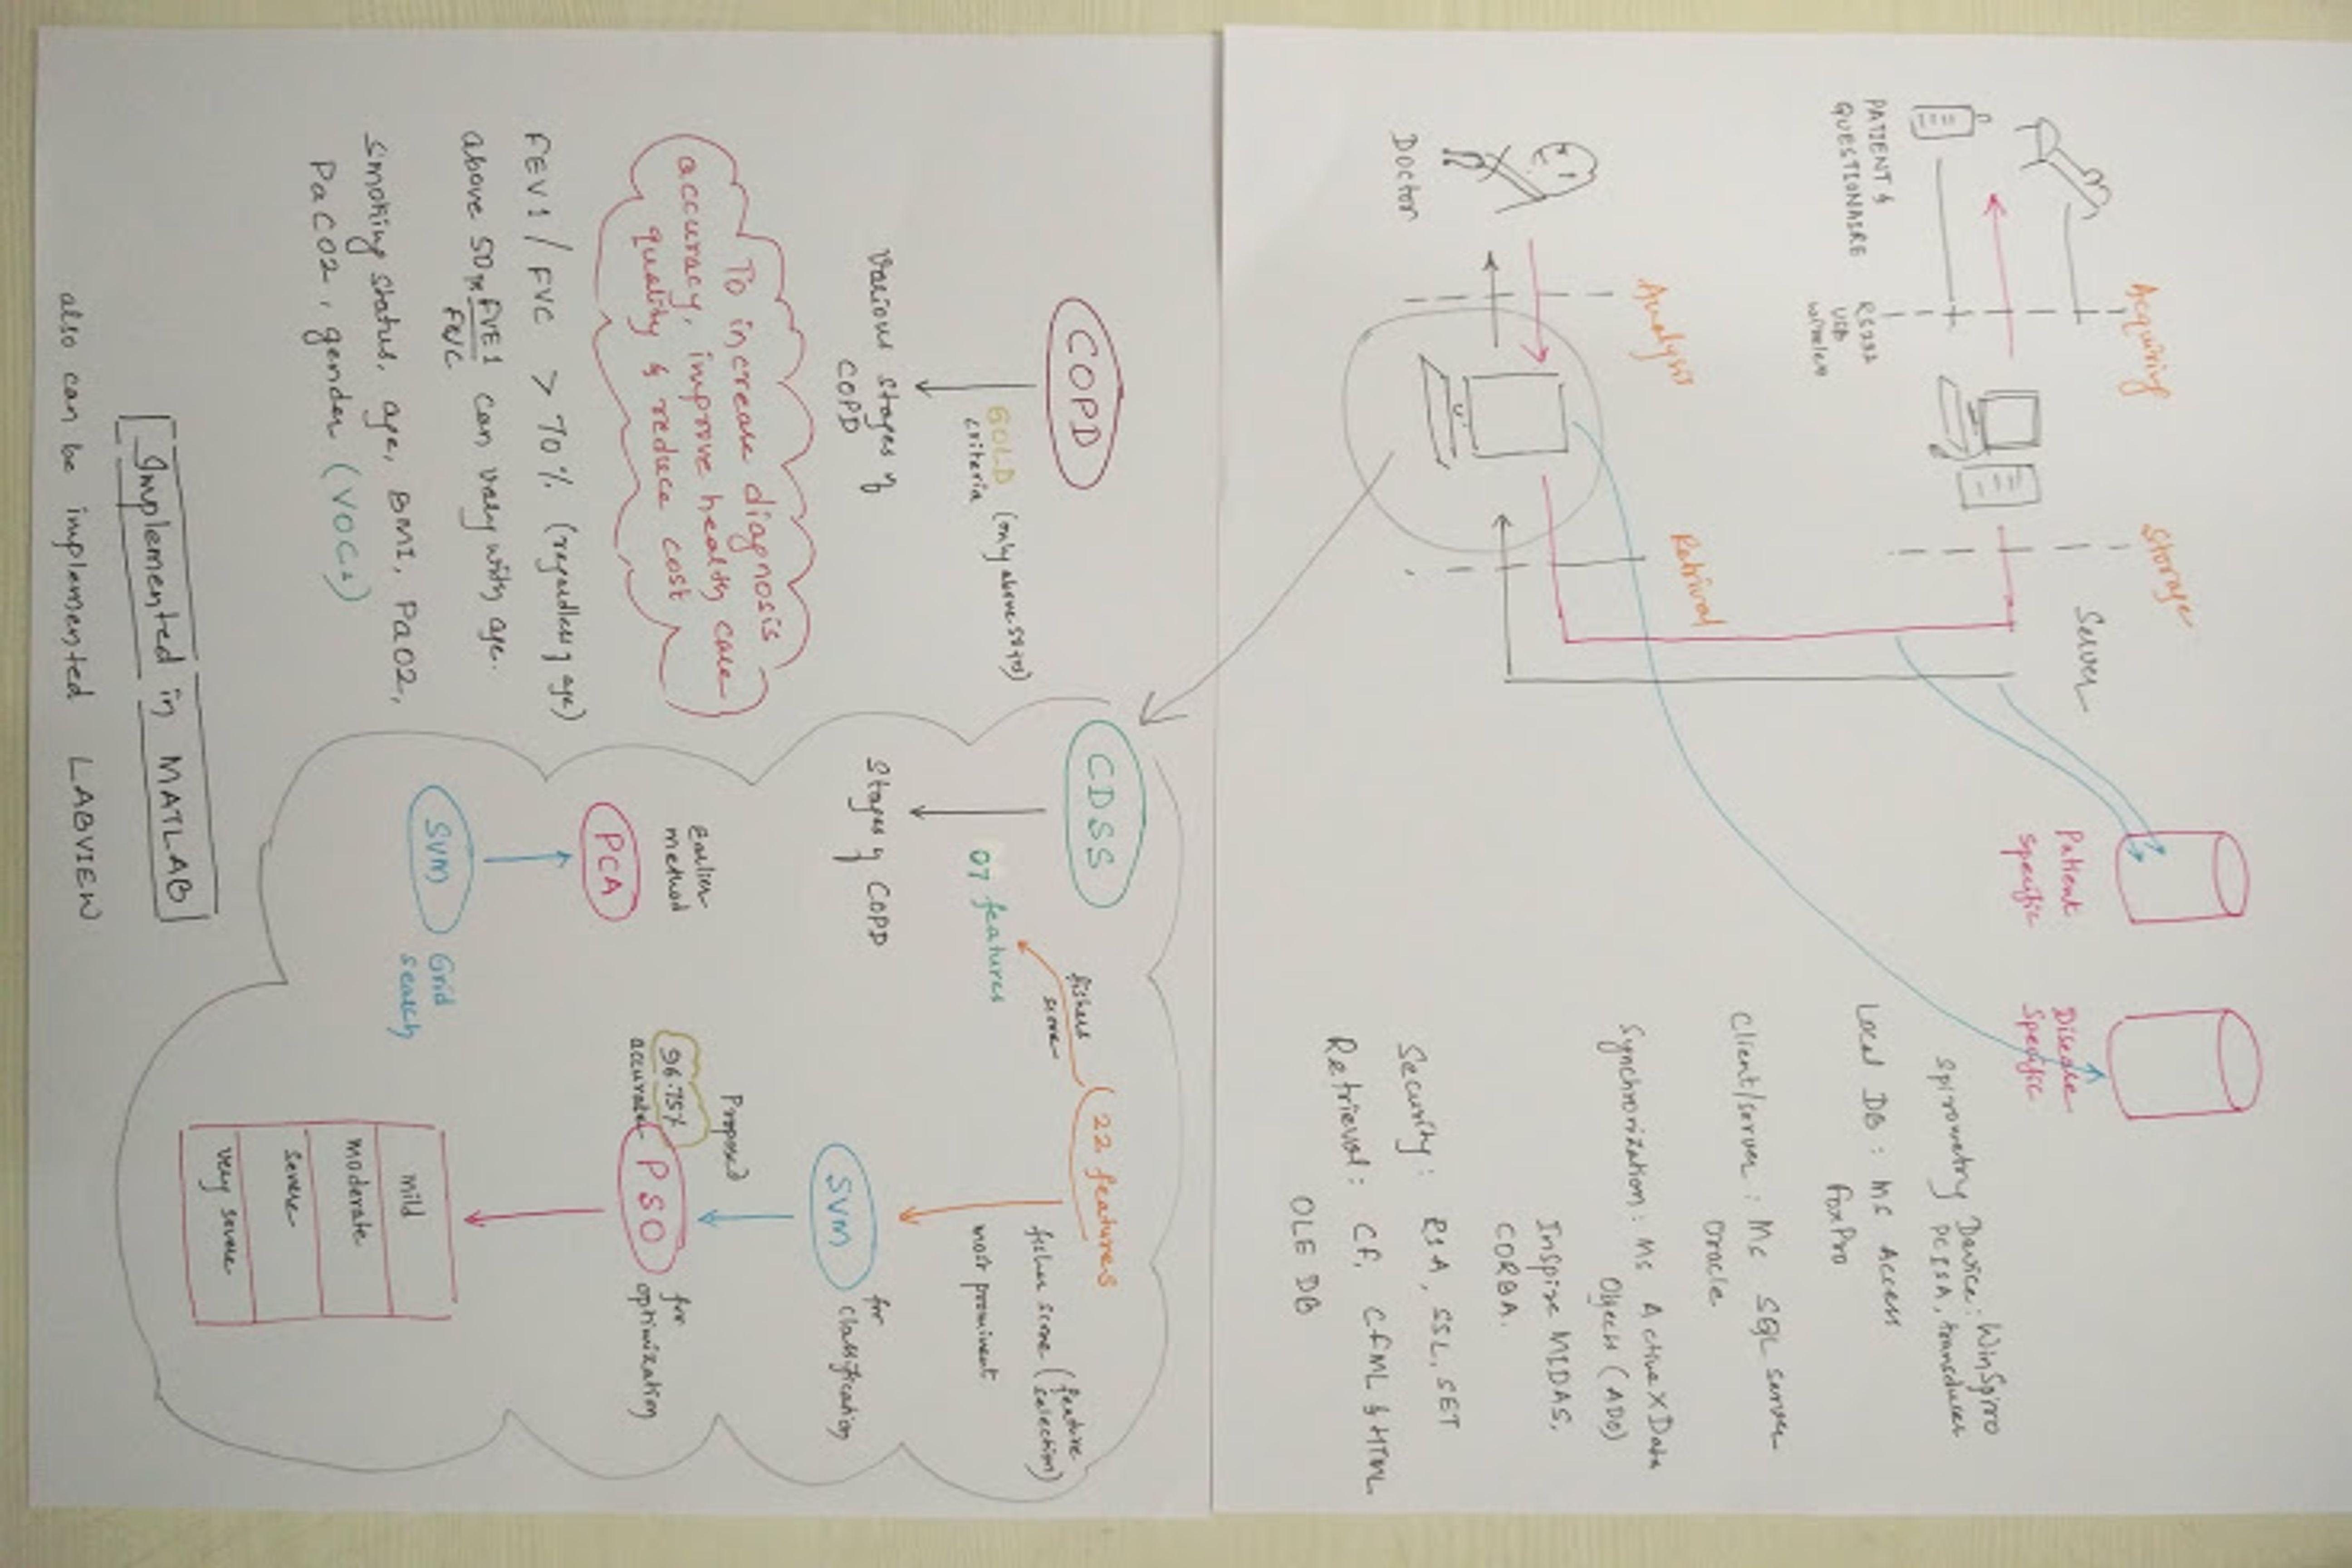 Acquiring
Storage
Server
PATIENT &
QUESTIONAIRE
RS232
USB
wireless
Patient
Specific
Disease
Specific
Analysis
Retrival
Doctor
Spirometry Device: WinSpiro
PCISA, transducer
Local DB: MS Access
FoxPro
Client/server: MS SQL server
Oracle
Synchronization: MS ActiveX Data
Objects (ADO)
Inspire MIDAS,
CORBA.
Security: RSA, SSL, SET
Retrieval: CF, CFML & HTML
OLE DB
COPD
GOLD (only above 50 yrs)
criteria
Various stages of
COPD
To increase diagnosis
accuracy, improve health care
quality & reduce cost
FEV1/FVC > 70% (regardless of age)
above 50 yrs FVE1 can vary with age.
FVC
Smoking status, age, BMI, PaO2,
PaCO2, gender (VOCs)
Implemented in MATLAB
also can be implemented LABVIEW
CDSS
07 features
Stages of COPD
fishers
score
22 features
fisher score (feature
selection)
most prominent
SVM for
classification
Proposed
96.75%
accurate
PSO for
optimization
Earlier
method
PCA
SVM Grid
search
mild
moderate
severe
very severe